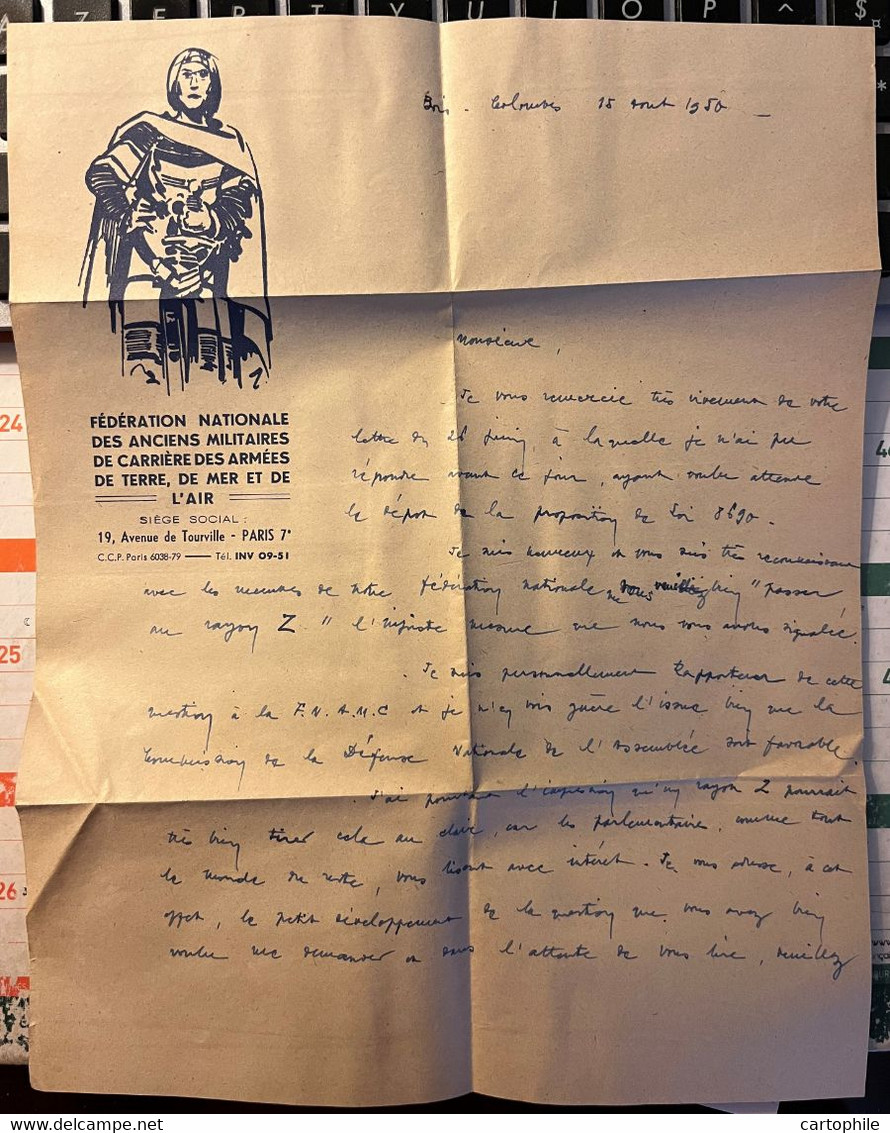 Bois-Colombes 15 aout 1950
Monsieur,
Je vous remercie très vivement de votre
lettre du 26 juin, à laquelle je n'ai pu
répondre avant ce jour, ayant voulu attendre
le dépôt de la proposition de loi 8690.
FÉDÉRATION NATIONALE
DES ANCIENS MILITAIRES
DE CARRIÈRE DES ARMÉES
DE TERRE, DE MER ET DE
L'AIR
SIÈGE SOCIAL :
19, Avenue de Tourville - PARIS 7e
C.C.P. Paris 6038-79 — Tél. INV 09-51
Je suis et vous suis très reconnaissant
avec les membres de notre fédération nationale bien "passer
au rayon Z" l'injuste mesure que nous vous avons signalée.
Je suis personnellement Rapporteur de cette
question à la F.N.A.M.C et je n'en vois guère l'issue bien que la
Commission de la Défense Nationale de l'Assemblée soit favorable.
J'ai pourtant l'impression qu'un rayon Z pourrait
très bien tirer cela au clair, car les parlementaires, comme tout
le monde du reste, vous lisent avec intérêt. Je vous adresse, à cet
effet, le petit développement de la question que vous avez bien
voulu me demander et dans l'attente de vous lire, veuillez
24
25
26
A Z E R T Y U I O P ^ $
cartophile